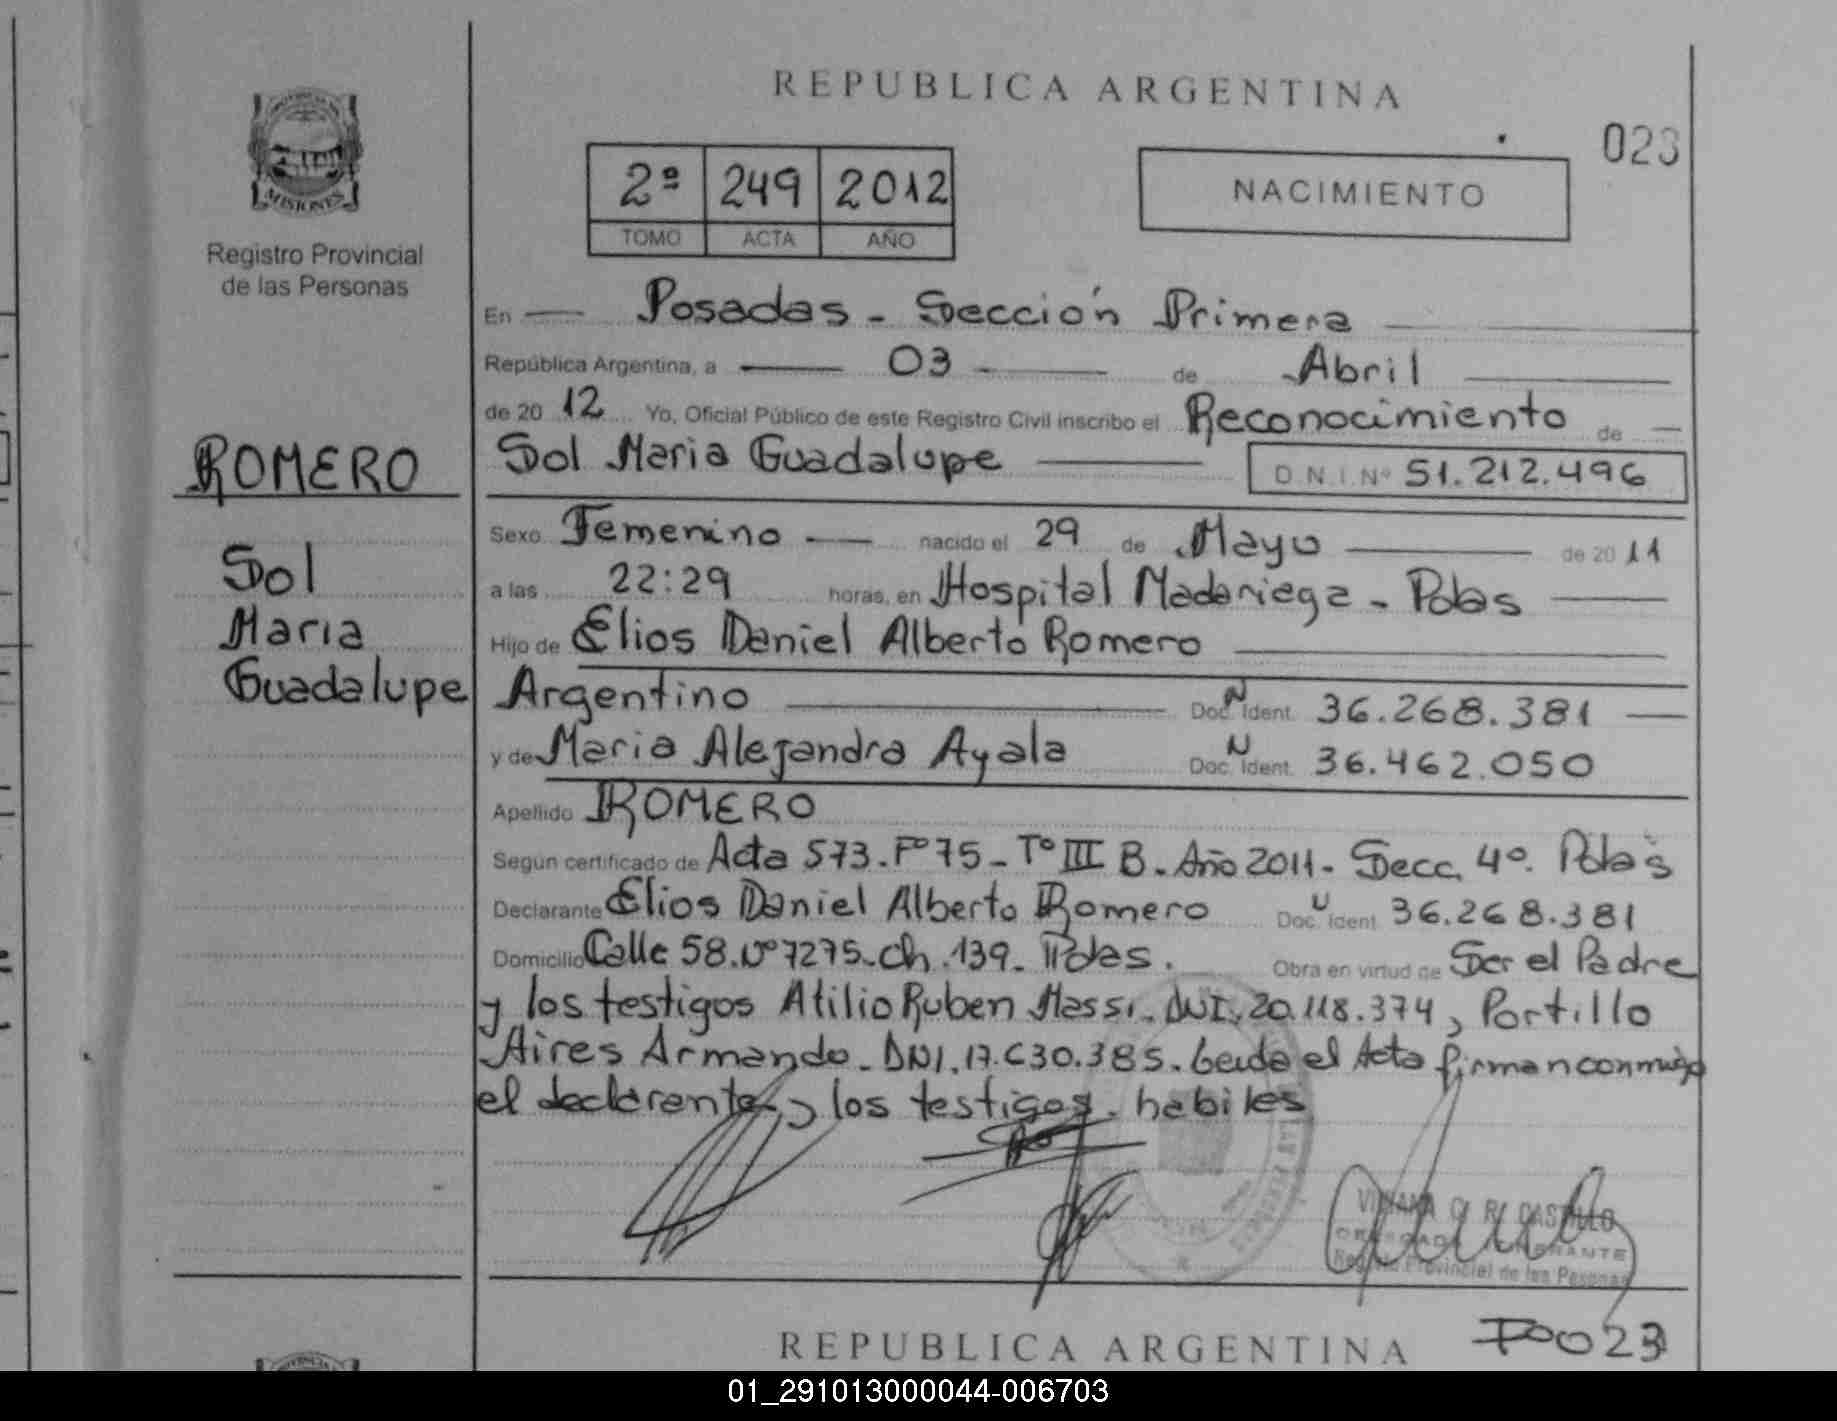 REPUBLICA ARGENTINA
023
2º 249 2012
TOMO ACTA AÑO
NACIMIENTO
MISIONES
Registro Provincial
de las Personas
ROMERO
Sol
Maria
Guadalupe
En Posadas - Sección Primera
República Argentina, a 03 de Abril
de 20 12 Yo, Oficial Público de este Registro Civil inscribo el Reconocimiento de
Sol Maria Guadalupe D.N.I.Nº 51.212.496
Sexo Femenino nacido el 29 de Mayo de 20 11
a las 22:29 horas, en Hospital Madariaga - Pdas
Hijo de Elios Daniel Alberto Romero
Argentino Doc. N Ident. 36.268.381
y de Maria Alejandra Ayala Doc. N Ident. 36.462.050
Apellido ROMERO
Según certificado de Acta 573. Fº 75 - Tº III B. Año 2011 - Secc. 4º. Pdas
Declarante Elios Daniel Alberto Romero Doc. Ident. 36.268.381
Domicilio Calle 58. Nº 7275 - Ch. 139 - Pdas. Obra en virtud de Ser el Padre
y los testigos Atilio Ruben Massi. DNI. 20.118.374, Portillo
Aires Armando - DNI. 17.630.385. Leida el Acta firman conmigo
el declarante y los testigos habiles
VIVIANA C. R. CASTILLO
Registro Provincial de las Personas
REPUBLICA ARGENTINA
Fº 023
01_291013000044-006703